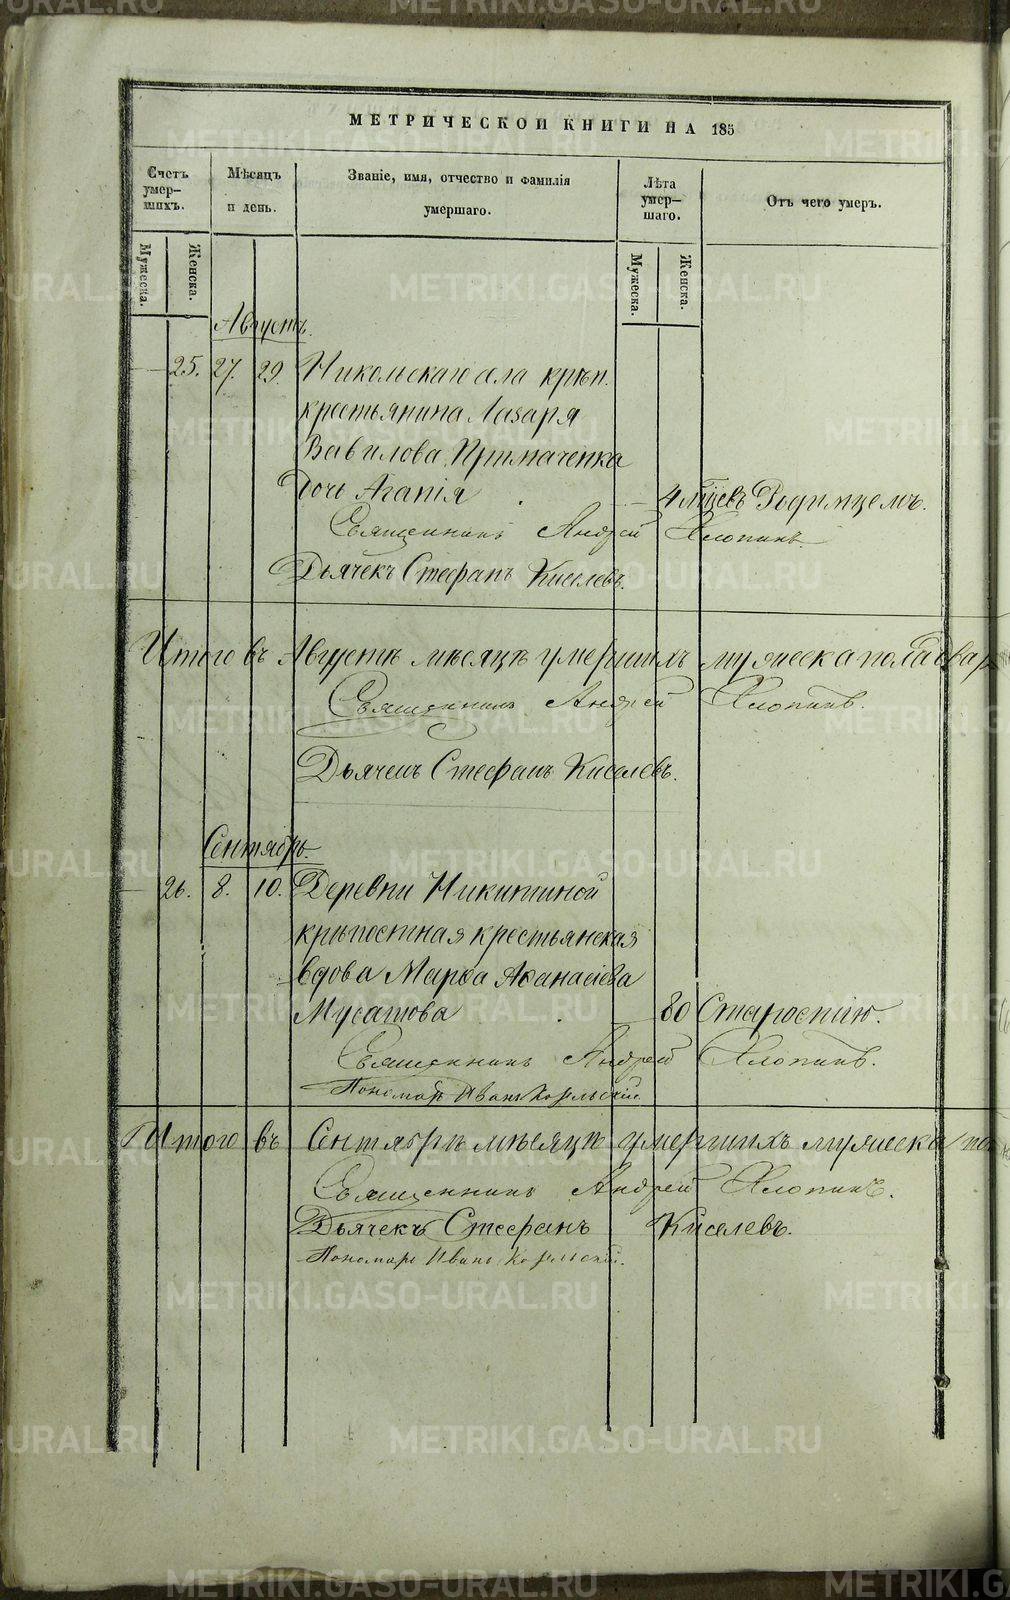 МЕТРИЧЕСКОЙ КНИГИ НА 185
Счетъ умер-шихъ.
Мѣсяцъ и день.
Званіе, имя, отчество и фамилія умершаго.
Лѣта умер-шаго.
Отъ чего умеръ.
Мужеска.
Женска.
Мужеска.
Женска.
Августъ.
25. 27. 29. Никольскаго села крѣп.
крестьянина Лазаря
Вавилова Примаченка
дочь Агапія 4 м̃цевъ Родимцемъ.
Священникъ Андрей Хлопинъ.
Дьячекъ Стефанъ Киселевъ.
Итого въ Августѣ мѣсяцѣ умершихъ мужеска пола два
Священникъ Андрей Хлопинъ.
Дьячекъ Стефанъ Киселевъ.
Сентябрь.
26. 8. 10. Деревни Никитиной
крѣпостная крестьянская
вдова Марѳа Аѳанасіева
Мусатова 80 Старостію.
Священникъ Андрей Хлопинъ.
Пономарь Иванъ
Итого въ Сентябрѣ мѣсяцѣ умершихъ мужеска по
Священникъ Андрей Хлопинъ.
Дьячекъ Стефанъ Киселевъ.
Пономарь Иванъ
METRIKI.GASO-URAL.RU